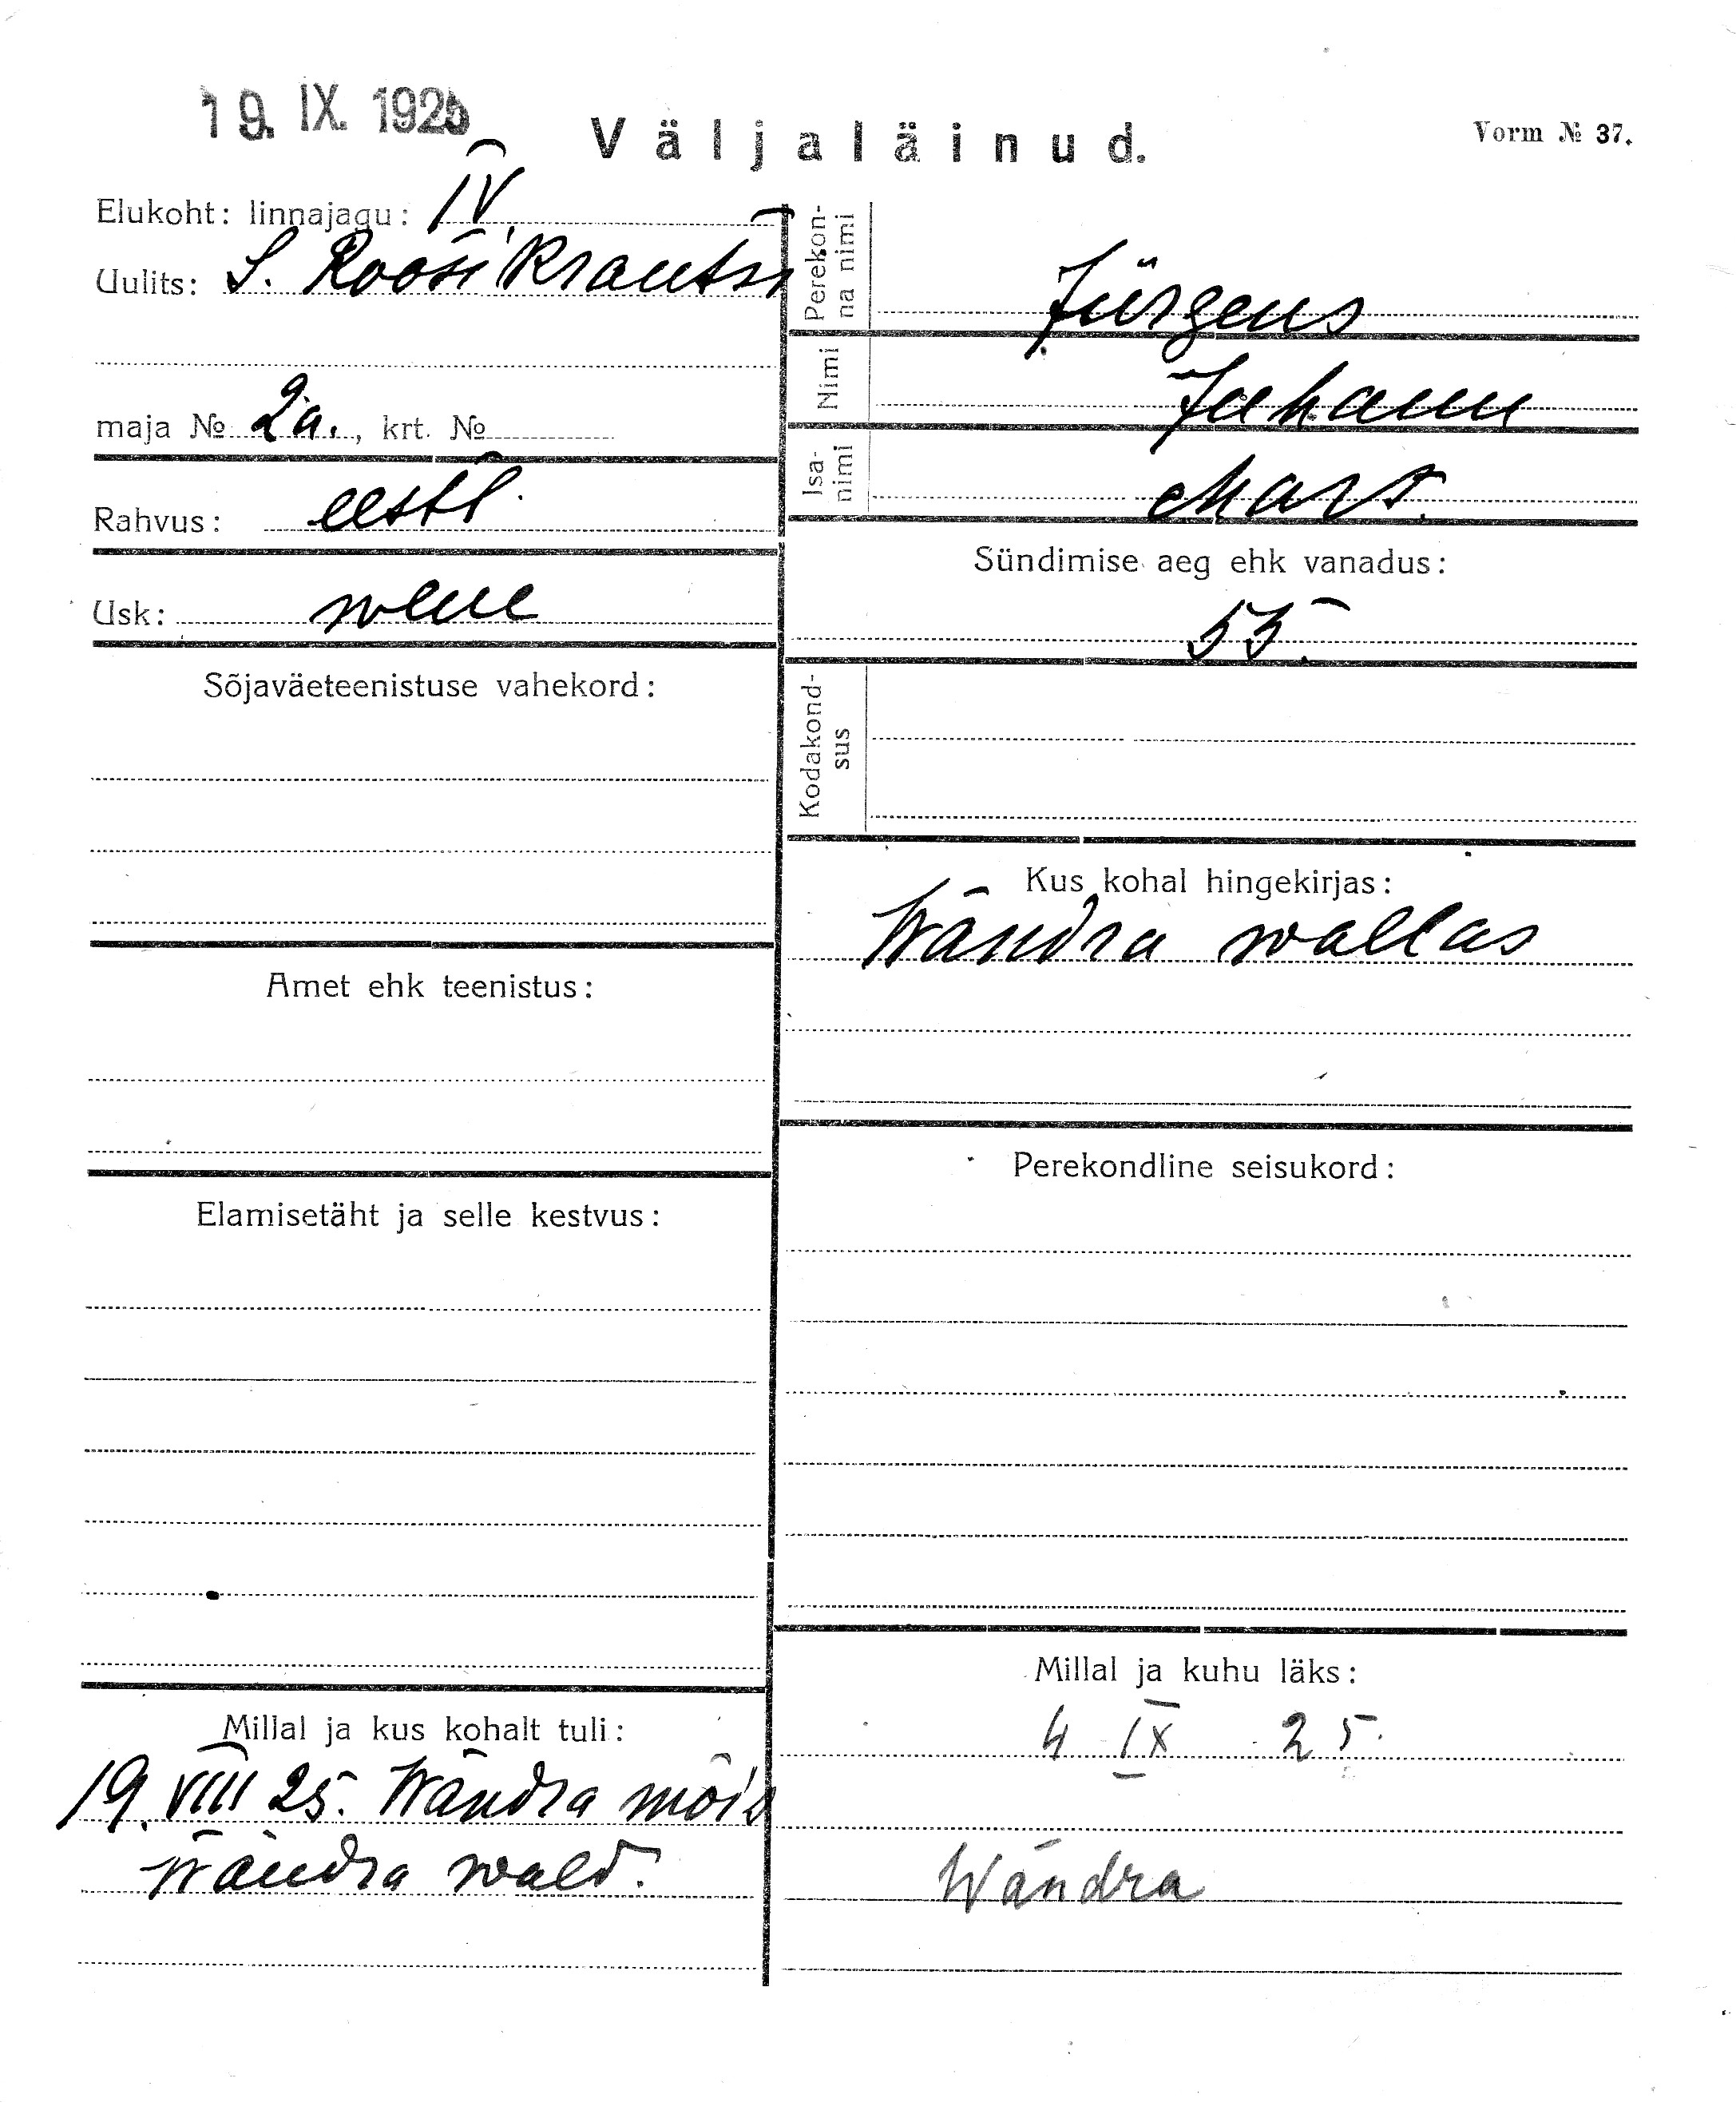 19. IX. 1925
Väljaläinud.
Vorm № 37.
Elukoht: linnajagu: IV
Uulits: S. Roosikrantsi
maja № 2a., krt. №
Rahvus: eestl.
Usk: wene
Sõjaväeteenistuse vahekord:
Amet ehk teenistus:
Elamisetäht ja selle kestvus:
Millal ja kus kohalt tuli:
19. VIII 25. Wändra mõis
Wändra wald.
Perekonna nimi Jürgens
Nimi Juhann
Isanimi Mart.
Sündimise aeg ehk vanadus:
55.
Kodakondsus
Kus kohal hingekirjas:
Wändra wallas
Perekondline seisukord:
Millal ja kuhu läks:
4 IX 25.
Wändra